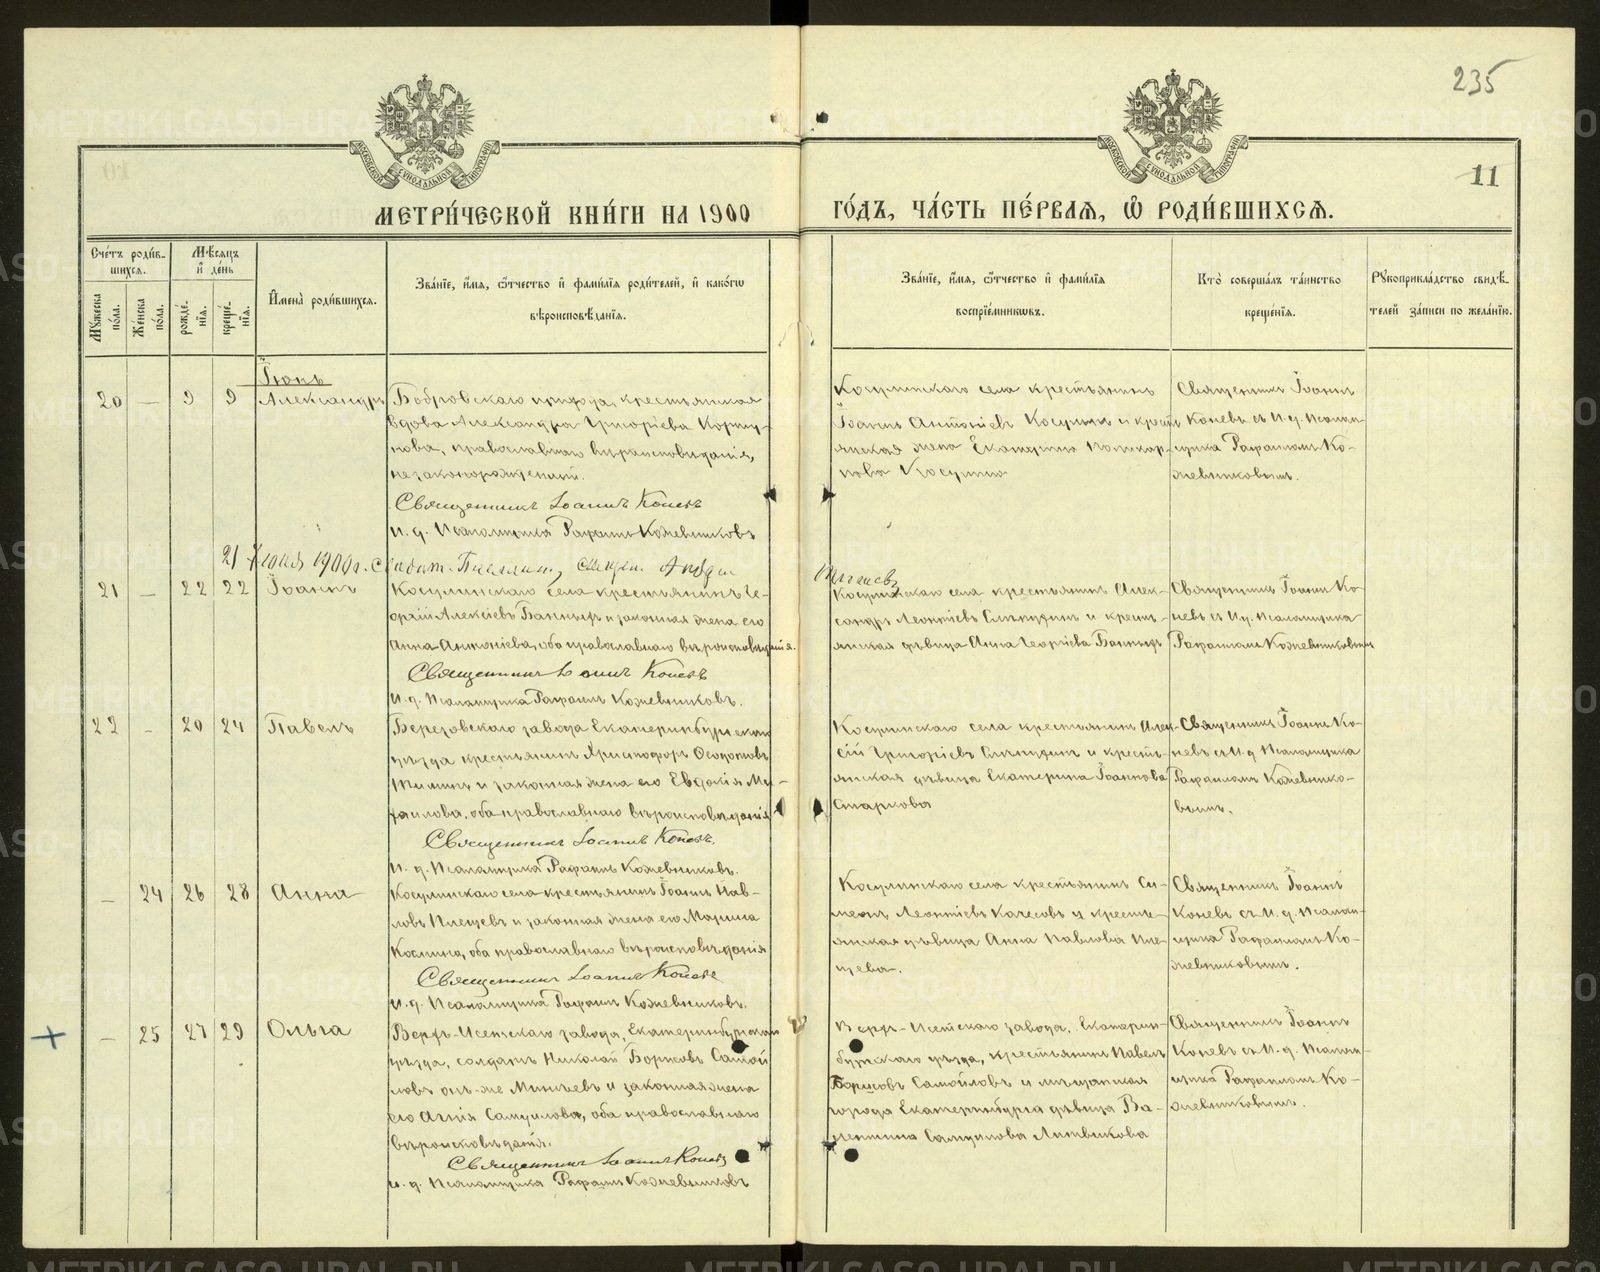 235
11
МЕТРИ́ЧЕСКОЙ КНИ́ГИ НА 1900
ГО́ДЪ, ЧА́СТЬ ПЕ́РВАЯ, Ѡ҆ РОДИ́ВШИХСЯ.
Сче́тъ роди́в-
шихся.
Мꙋ́жеска по́ла.
Же́нска по́ла.
Мѣ́сяцъ и҆ де́нь
рожде́нїя.
креще́нїя.
И҆мена̀ роди́вшихся.
Зва́нїе, и҆́мя, ѻ҆́тчество и҆ фами́лїѧ роди́телей, и҆ како́гѡ
вѣроисповѣ́данїя.
Зва́нїе, и҆́мя, ѻ҆́тчество и҆ фами́лїѧ
воспрїе́мникѡвъ.
Кто̀ соверша́лъ та́инство
креще́нїя.
Рꙋкоприкла́дство свидѣ́-
телей за́писи по жела́нїю.
Іюнь
20 — 9 9 Александръ
Бобровскаго прихода, крестьянская
вдова Александра Григоріева Коршу-
нова, православнаго вѣроисповѣданія,
незаконорожденный.
Священникъ Іоаннъ Коневъ
и. д. Псаломщика Рафаилъ Кожевниковъ
Косулинскаго села крестьянинъ
Іоаннъ Антоніевъ Косулинъ и крест-
янская жена Екатерина
Косулина
Священникъ Іоаннъ
Коневъ съ И. д. Псалом-
щика Рафаиломъ Ко-
жевниковымъ.
21 Іюля 1900 г.
21 — 22 22 Іоаннъ
Косулинскаго села крестьянинъ Ге-
оргій Алексіевъ Банныхъ и законная жена его
Анна Антоніева, оба православнаго вѣроисповѣданія.
Священникъ Іоаннъ Коневъ
И. д. Псаломщика Рафаилъ Кожевниковъ.
Косулинскаго села крестьянинъ Алек-
сандръ Леонтіевъ и кресть-
янская дѣвица Анна Георгіева Банныхъ
Священникъ Іоаннъ Ко-
невъ съ И. д. Псаломщика
Рафаиломъ Кожевниковымъ
22 - 20 24 Павелъ
Березовскаго завода Екатеринбургскаго
уѣзда крестьянинъ Христофоръ Ѳедотовъ
и законная жена его Евдокія Ми-
хаилова, оба православнаго вѣроисповѣданія
Священникъ Іоаннъ Коневъ.
И. д. Псаломщика Рафаилъ Кожевниковъ.
Косулинскаго села крестьянинъ Алек-
сій Григоріевъ и кресть-
янская дѣвица Екатерина Іоаннова
Старкова
Священникъ Іоаннъ Ко-
невъ съ И. д Псаломщика
Рафаиломъ Кожевнико-
вымъ.
— 24 26 28 Анна
Косулинскаго села крестьянинъ Іоаннъ Пав-
ловъ Плещевъ и законная жена его Марина
Космина, оба православнаго вѣроисповѣданія
Священникъ Іоаннъ Коневъ
И. д. Псаломщика Рафаилъ Кожевниковъ.
Косулинскаго села крестьянинъ Си-
меонъ Леонтіевъ Качесовъ и кресть-
янская дѣвица Анна Павлова Пле-
щева.
Священникъ Іоаннъ
Коневъ съ И. д. Псалом-
щика Рафаиломъ Ко-
жевниковымъ.
— 25 27 29 Ольга
Верхъ-Исетскаго завода, Екатеринбургскаго
уѣзда, солдатъ Николай Борисовъ Самой
ловъ онъ-же Минѣевъ и законная жена
его Агнія Самуилова, оба православнаго
вѣроисповѣданія.
Священникъ Іоаннъ Коневъ
и. д. Псаломщика Рафаилъ Кожевниковъ
Верхъ-Исетскаго завода, Екатерин-
бургскаго уѣзда, крестьянинъ Павелъ
Борисовъ Самойловъ и мѣщанская
города Екатеринбурга дѣвица Ва-
лентина Самуилова Литвикова
Священникъ Іоаннъ
Коневъ съ И. д. Псалом-
щика Рафаиломъ Ко-
жевниковымъ.